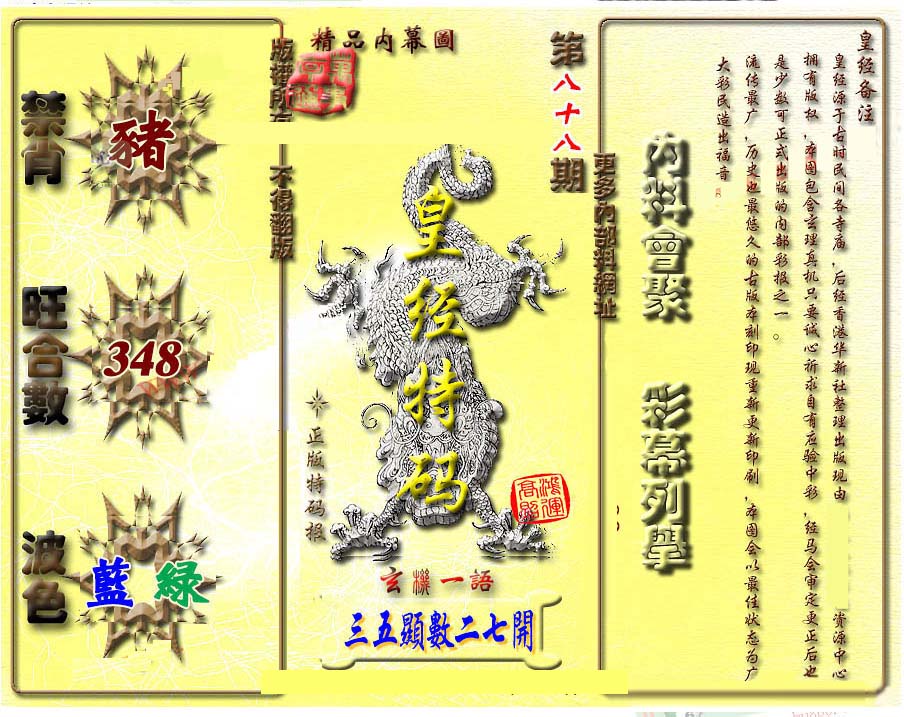 精品内幕圖
第八十八期
皇经特码
正版特码报
鴻運高照
玄機一語
三五顯數二七開
禁肖
豬
旺合數
348
波色
藍 綠
版權所有
不得翻版
更多內部料網址
內料會聚
彩幕列舉
皇经备注
皇经源于古时民间各寺庙，后经香港华新社整理出版现由 资源中心
拥有版权，本图包含玄理真机只要诚心祈求自有应验中彩，经马会审定更正后也
是少数可正式出版的内部彩报之一。
流传最广，历史也最悠久的古版本刻印现重新更新印刷，本图会以最佳状态为广
大彩民造出福音